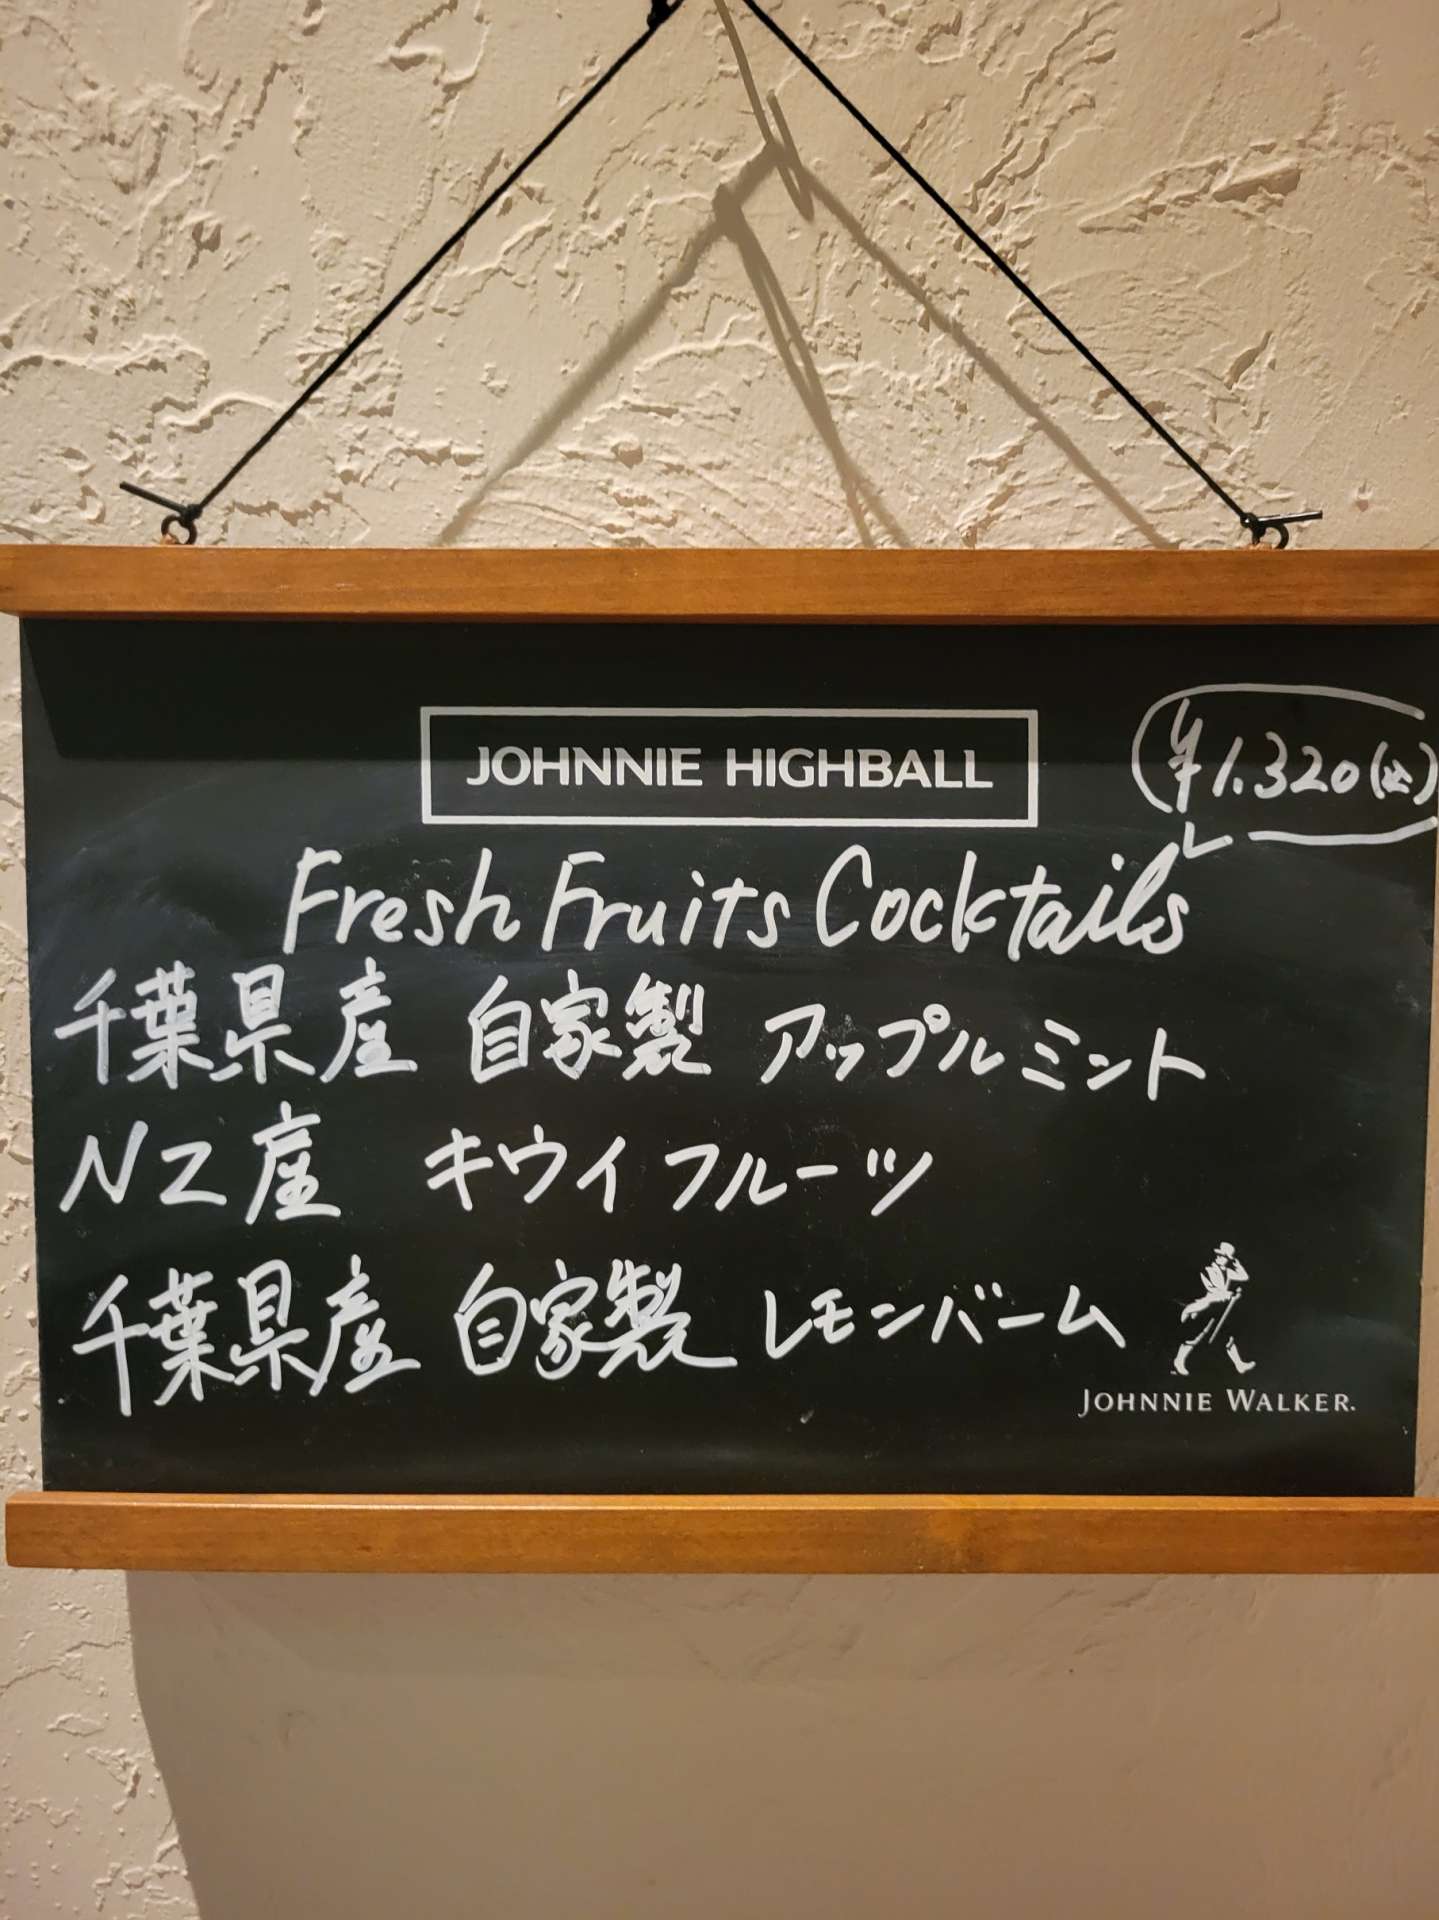 JOHNNIE HIGHBALL
¥1.320(込)
Fresh Fruits Cocktails
千葉県産 自家製 アップルミント
NZ産 キウイフルーツ
千葉県産 自家製 レモンバーム
JOHNNIE WALKER.